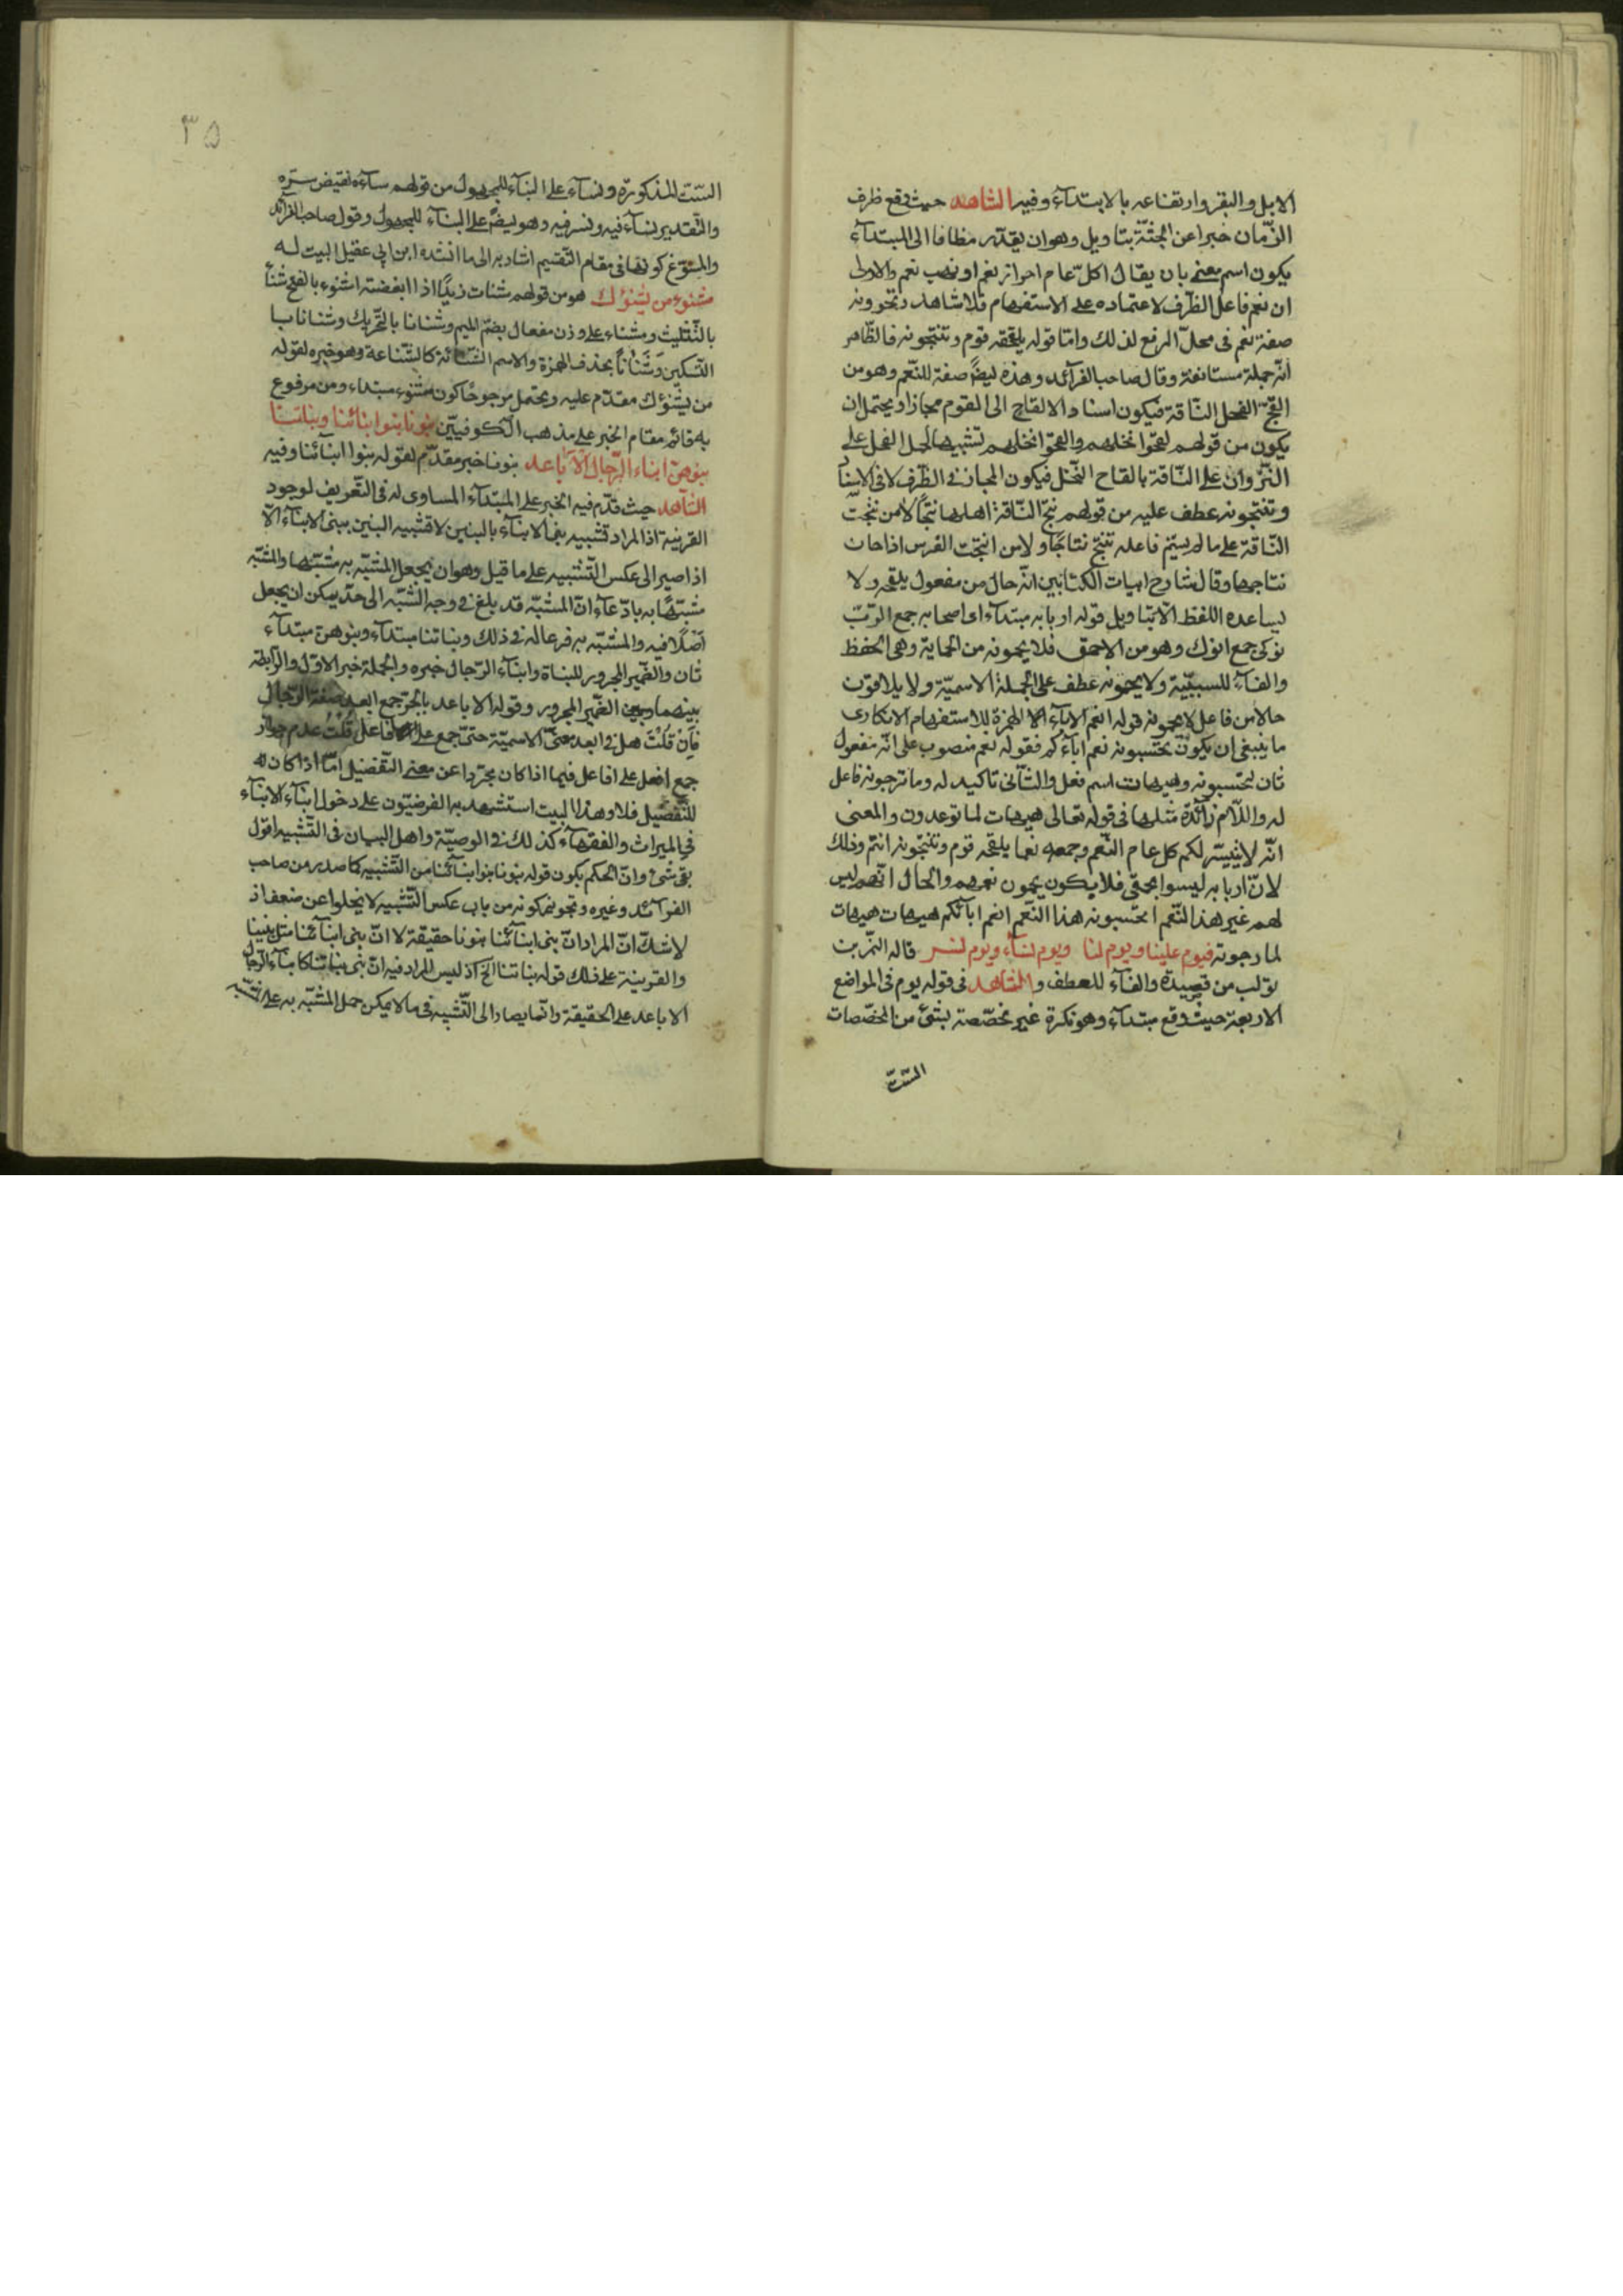 الابل والبقر وارتفاعه بالابتدآء وفيه الشاهد حيث وقع ظرف
الزّمان خبرا عن الجثّة بتاويل وهو ان يقدّر مظافا الى المبتدآء
يكون اسم معنى بان يقال اكلّ عام احراز نعم او نهب نعم والاولى
ان نعم فاعل الظّرف لاعتماده على الاستفهام فلا شاهد وتحوونه
صفة نعم فى محلّ الرفع لذلك وامّا قوله يلقحه قوم وتنتجونه فالظّاهر
انّه جملة مستانفة وقال صاحب الفرآئد وهذه ايضًا صفة للنّعم وهو من
القح الفحل النّاقة فيكون اسناد الالقاح الى القوم مجازا ويحتمل ان
يكون من قولهم لقحوا نخلهم والقحوا نخلهم تشبيها لحمل الفحل على
النّزوان على النّاقة بالقاح النّخل فيكون المجاز فى الظّرف لا فى الاسناد
وتنتجونه عطف عليه من قولهم نتج النّاقة اهلها نتجًا لا من نتجت
النّاقة على ما لم يسمّ فاعله تنتج نتاجًا ولا من انتجت الفرس اذا حان
نتاجها وقال شارح ابيات الكتابين انّه حال من مفعول يلقحه ولا
يساعده اللفظ الّا بتاويل قوله اربابه مبتدآء اى اصحابه جمع الرّبّ
نوكى جمع انوك وهو من الاحمق فلا يحمونه من الحماية وهى الحفظ
والفآء للسببيّة ولا يحمونه عطف على الجملة الاسميّة ولا يلاقون
حال من فاعل لا يحمونه قوله انعم الابآء الا الهمزة للاستفهام الانكارى
ما ينبغى ان يكون تحتسبونه نعم ابآءكم فقوله نعم منصوب على انّه مفعول
ثان لتحتسبونه وهيهات اسم فعل والثّانى تاكيد له وما ترجونه فاعل
له واللّام زآئدة مثلها فى قوله تعالى هيهات لما توعدون والمعنى
انّه لا يتيسّر لكم كل عام النّعم وجمعه نعما يلقحه قوم وتنتجونه انتم وذلك
لانّ اربابه ليسوا بحمقى فلا يكون يحمون نعمهم والحال انّهم ليس
لهم غير هذا النّعم اتحتسبونه هذا النّعم انعم ابآئكم هيهات هيهات
لما ترجونه فيوم علينا ويوم لنا ويوم نسآء ويوم نسر قاله النمر بن
تولب من قصيدة والفآء للعطف والشاهد فى قوله يوم فى المواضع
الاربعة حيث وقع مبتدآء وهو نكرة غير مخصّصة بشئ من المخصّصات
الستّ
٣٥
الستّ المذكورة ونسآء على البنآء للمجهول من قولهم سآءه نقيض سرّه
والتّقدير نسآء فيه ونسر فيه وهو ايضًا على البنآء للمجهول وقول صاحب الفرآئد
والمسّوغ كونها فى مقام التّقسيم اشار به الى ما انشده ابن ابى عقيل البيت له
مشنوء من يشنؤك هو من قولهم شنات زيدًا اذا ابغضته اشنوء بالفتح شنأ
بالتّثليث ومشناء على وزن مفعال بضمّ الميم وشنانا بالتّحريك وشنانا بـا
التّسكين وشنانًا بحذف الهمزة والاسم الشنائة كالشّناعة وهو خبره لقوله
من يشنؤك مقدّم عليه ويحتمل مرجوحًا كون مشنوء مبتداء ومن مرفوع
به قائم مقام الخبر على مذهب الكوفيّين بنونا بنوا ابنائنا وبناتنا
بنوهنّ ابناء الرّجال الاباعد بنونا خبر مقدّم لقوله بنوا ابنآئنا وفيه
الشاهد حيث قدّم فيه الخبر على المبتدآء المساوى له فى التّعريف لوجود
القرينة اذا المراد تشبيه بنى الابنآء بالبنين لا تشبيه البنين ببنى الابنآء الّا
اذا صير الى عكس التّشبيه على ما قيل وهو ان يجعل المشبّه به مشبّها والمشبّه
مشبّهًا به بادّعآء انّ المشبّه قد بلغ فى وجه الشّبه الى حدّ يمكن ان يجعل
اصلًا فيه والمشبّه به فرعا له فى ذلك وبناتنا مبتدآء وبنوهن مبتدآء
ثان والضّمير المجرور للبناة وابنآء الرّجال خبره والجملة خبر الاوّل والرّابطة
بينهما وبين الضّمير المجرور وقوله الاباعد بالجرّ جمع ابعد صفة الرّجال
فان قلت هل فى ابعد معنى الاسميّة حتى جمع على افاعل قلت عدم جواز
جمع افعل على افاعل فيما اذا كان مجرّدا عن معنى التّفضيل امّا اذا كان له
للتّفضيل فلا وهذا البيت استشهد به الفرضيّون على دخول ابنآء الابنآء
فى الميراث والفقهآء كذلك فى الوصيّة واهل البيان فى التّشبيه اقول
بقى شئ وانّ الحكم بكون قوله بنونا بنوا ابنآئنا من التّشبيه كما صدر من صاحب
الفرآئد وغيره وتجويزه كونه من باب عكس التّشبيه لا يخلوا عن ضعف اذ
لا شكّ انّ المراد انّ بنى ابنآئنا بنونا حقيقة لا انّ بنى ابنآئنا مثل بنينا
والقرينة على ذلك قوله بناتنا الخ اذ ليس المراد فيه انّ بنى بناتنا كابنآء الرّجال
الاباعد على الحقيقة وانّما يصار الى التّشبيه فى ما لا يمكن حمل المشبّه به على